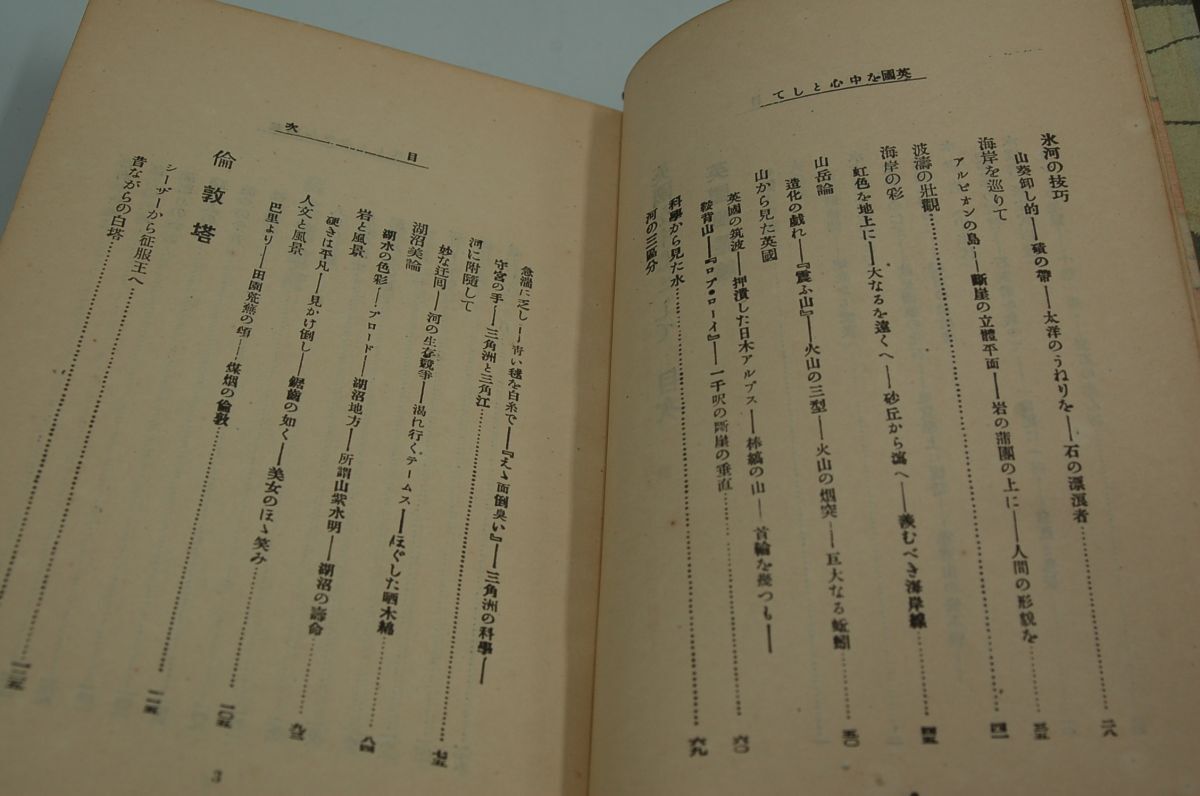 英國を中心として
氷河の技巧
山葵卸し的——礦の帶——太洋のうねりを——石の漂浪者……二八
海岸を巡りて……三五
アルビオンの島——斷崖の立體平面——岩の蒲團の上に——人間の形貌を
波濤の壯觀……四一
海岸の彩……四五
虹色を地上に——大なるを遠くへ——砂丘から瀉へ——羨むべき海岸線
山岳論……五〇
造化の戲れ——『震ふ山』——火山の三型——火山の烟突——巨大なる蚯蚓
山から見た英國……六〇
英國の筑波——押潰した日木アルプス——棒縞の山——首輪を幾つも——
鞍背山——『ロブ・ローイ』——一千呎の斷崖の垂直
科學から見た水……六九
河の三區分
目次
急湍に乏し——靑い毬を白糸で——『えゝ面倒臭い』——三角洲の科學——
守宮の手——三角洲と三角江
河に附隨して……七五
妙な迂囘——河の生存競爭——渴れ行くテームス——ほぐした晒木綿
湖沼美論……八四
湖水の色彩——ブロード——湖沼地方——所謂山紫水明——湖沼の壽命
岩と風景……九三
硬きは平凡——見かけ倒し——鋸齒の如く——美女のほゝ笑み
人文と風景……一〇五
巴里より——田園荒蕪の頌——煤烟の倫敦
倫敦塔
シーザーから征服王へ……一一五
昔ながらの白塔
3